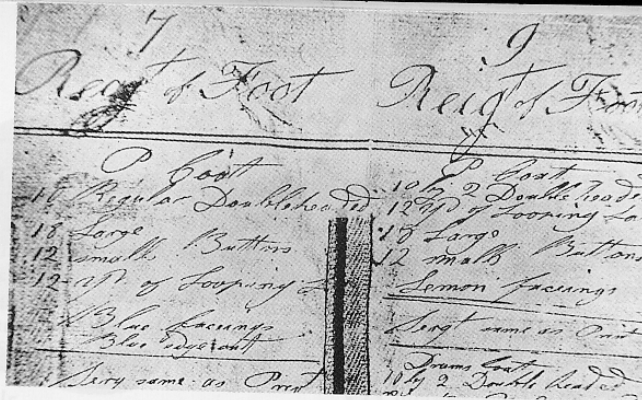 7
Regt of Foot
P Coat
18 Regular Doubleheaded
18 Large
12 small Buttons
12 yds of Looping
Blue facings
Blue edge out
Serg same as Privt
9
Reigt of Foot
P Coat
10 by 2 Double head
12 yd of Looping
18 Large
12 small Buttons
Lemon facings
Sergt same as Priv
Drums Coat
10 by 2 Double headed